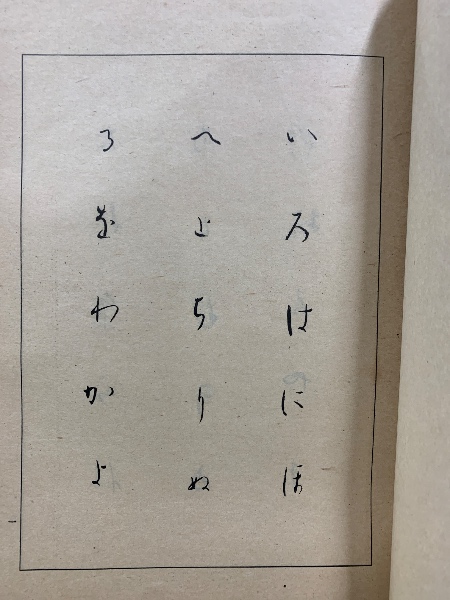 いろはにほ
へとちりぬ
るをわかよ